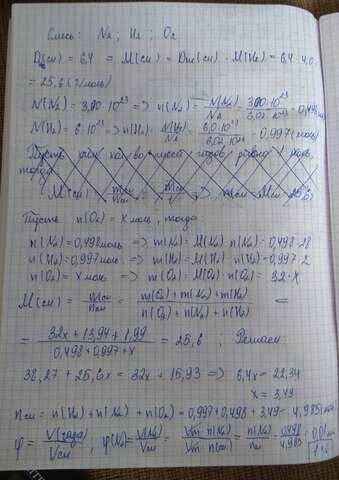 Смесь: N₂ ; H₂ ; O₂
D(см) = 6,4 => M(см) = D_He(см) · M(He) = 6,4 · 4,0 =
= 25,6 (г/моль)
N(N₂) = 3,00 · 10²³ => n(N₂) = N(N₂)/N_A = 3,00·10²³/6,02·10²³ = 0,498 моль
N(H₂) = 6 · 10²³ => n(H₂) = N(H₂)/N_A = 6,0·10²³/6,02·10²³ = 0,997 (моль)
Пусть кол-во смеси равно 1 моль,
тогда
M(см) = m см/n см = m см/1 => m см = M см = 25,6
Пусть n(O₂) = x моль, тогда
n(N₂) = 0,498 моль => m(N₂) = M(N₂) · n(N₂) = 0,498 · 28
n(H₂) = 0,997 моль => m(H₂) = M(H₂) · n(H₂) = 0,997 · 2
n(O₂) = x моль => m(O₂) = M(O₂) · n(O₂) = 32 · x
M(см) = m см/n см = m(O₂) + m(N₂) + m(H₂)/n(O₂) + n(N₂) + n(H₂) =
= 32x + 13,94 + 1,99/0,498 + 0,997 + x = 25,6 ; Решаем:
38,27 + 25,6x = 32x + 15,93 => 6,4x = 22,34
x = 3,49
n см = n(H₂) + n(N₂) + n(O₂) = 0,997 + 0,498 + 3,49 = 4,985 (моль)
φ = V(газа)/V см ; φ(N₂) = V(N₂)/V см = Vm · n(N₂)/Vm · n(см) = n(N₂)/n см = 0,498/4,985